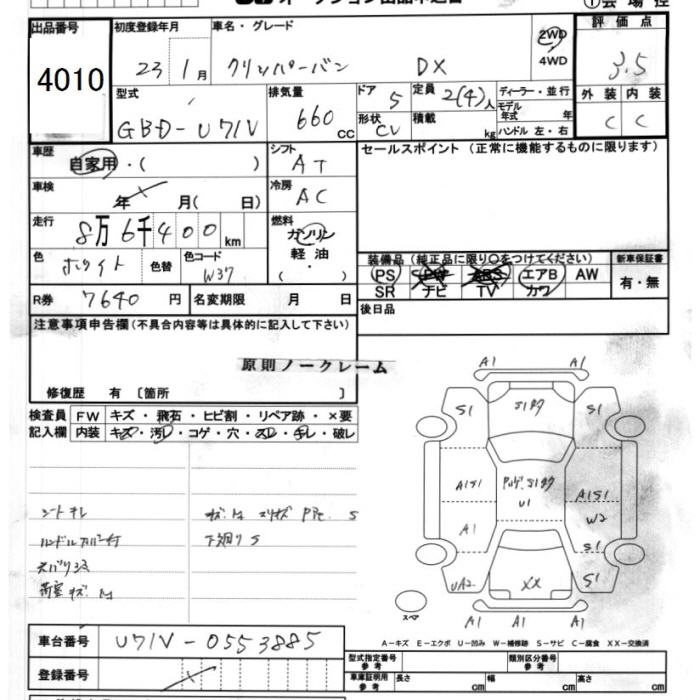 オークション出品申込書
①会場控
出品番号 4010
初度登録年月 23 1月
車名・グレード クリッパーバン DX
2WD
4WD
評価点 3.5
外装 C 内装 C
型式 GBD-U71V
排気量 660 CC
ドア 5
形状 CV
定員 2(4)人
積載 kg
ディーラー・並行
モデル年式 年
ハンドル 左・右
車歴 自家用・( )
シフト AT
セールスポイント (正常に機能するものに限ります)
車検 年 月( 日)
冷房 AC
走行 8万6千400km
燃料 ガソリン 軽油・( )
色 ホワイト 色替
色コード W37
装備品 (純正品に限り○をつけてください)
PS PW ABS エアB AW
SR ナビ TV カワ
新車保証書 有・無
R券 7640円
名変期限 月 日
後日品
注意事項申告欄(不具合内容等は具体的に記入して下さい)
原則ノークレーム
修復歴 有 〔箇所 〕
検査員記入欄
FW キズ・飛石・ヒビ割・リペア跡・×要
内装 キズ・汚レ・コゲ・穴・スレ・手レ・破レ
ハンドルカバー付
下廻りS
A1 A1
S1 S1
A1S1 A1S1
U1
A1 W2
S1
UA2 XX S1
A1 A1 A1
スペア
A-キズ E-エクボ U-凹み W-補修跡 S-サビ C-腐食 XX-交換済
車台番号 U71V-0553885
登録番号
型式指定番号 参考
類別区分番号 参考
車庫証明用 参考 長さ cm 幅 cm 高さ cm